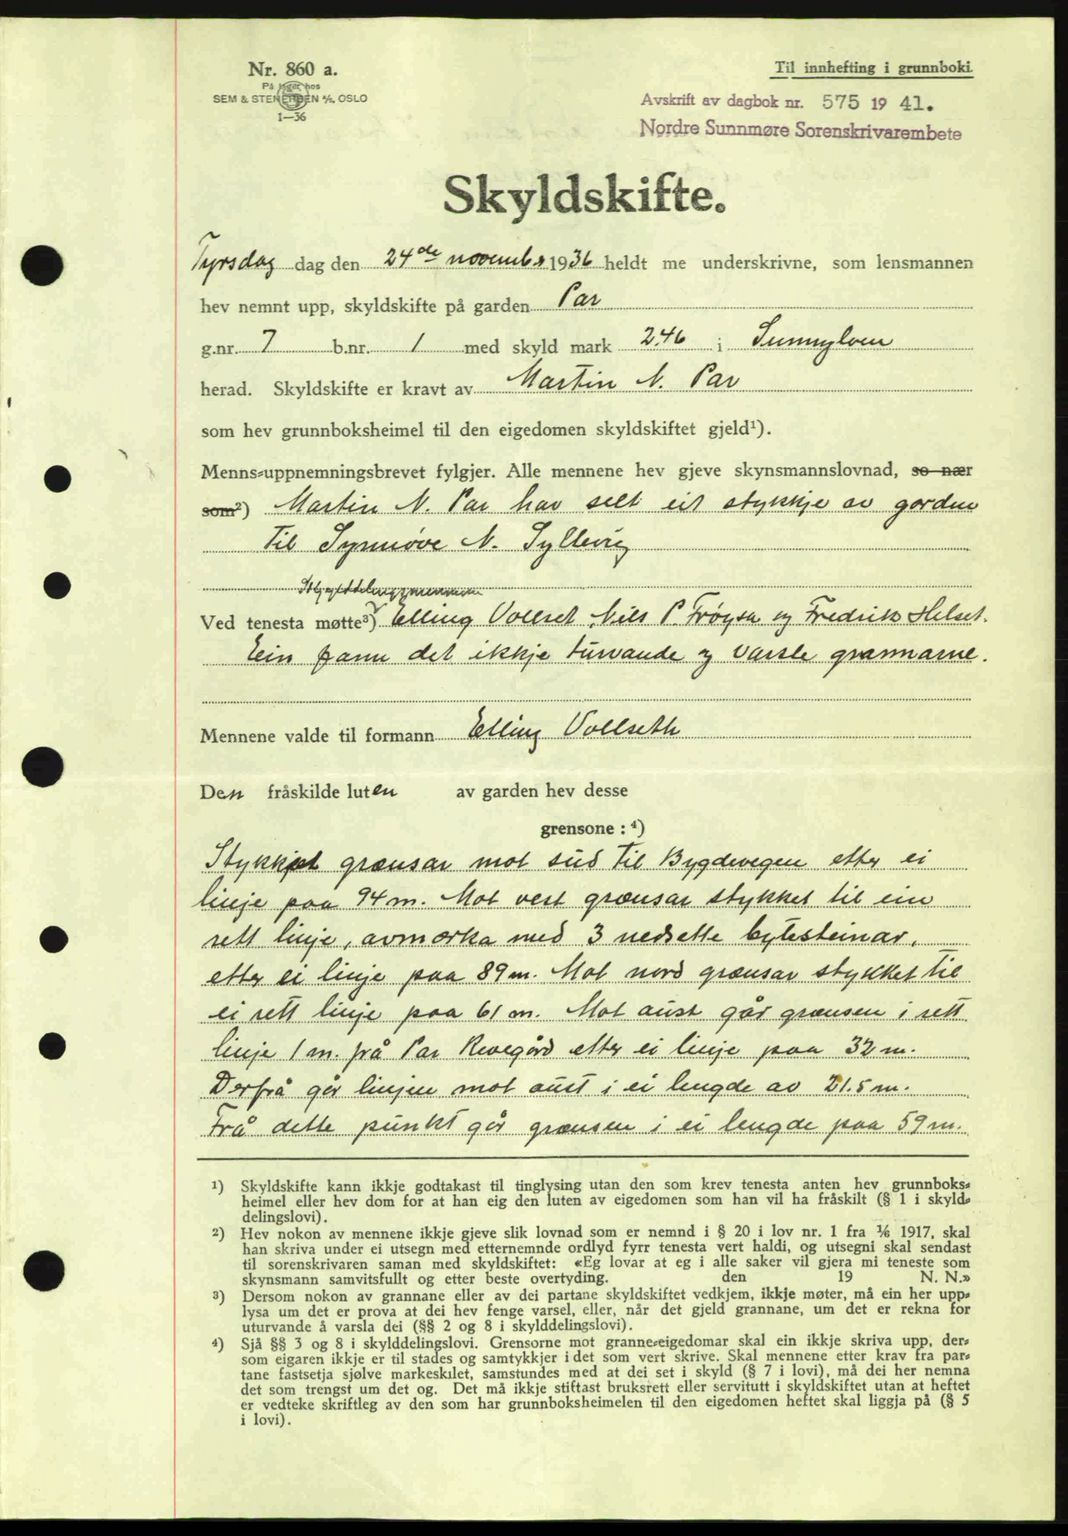 Nr. 860 a.
På lager hos
SEM & STENERSEN A/S, OSLO
1—36
Til innhefting i grunnboki.
Avskrift av dagbok nr. 575 19 41.
Nordre Sunnmøre Sorenskrivarembete
Skyldskifte.
Tyrsdag dag den 24de novembr 1936 heldt me underskrivne, som lensmannen
hev nemnt upp, skyldskifte på garden Par
g.nr. 7 b.nr. 1 med skyld mark 2.46 i Sunnylven
herad. Skyldskifte er kravt av Martin N. Par
som hev grunnboksheimel til den eigedomen skyldskiftet gjeld¹).
Menns-uppnemningsbrevet fylgjer. Alle mennene hev gjeve skynsmannslovnad, so nær
som²) Martin N. Par hav selt eit stykkje av gorden
til Synnøve N. Syllevig
Ved tenesta møtte³) Elling Vollset, Nils P. Frøysa og Fredrik Helset.
Ein fann det ikkje turvande og varsle grannarne.
Mennene valde til formann Elling Vollseth
Den fråskilde luten av garden hev desse
grensone : ⁴)
Stykkjet grænsar mot sud til Bygdevegen etter ei
linje paa 94 m. Mot vest grænsar stykket til ein
rett linje, avmerka med 3 nedsette bytesteinar,
etter ei linje paa 89 m. Mot nord grænsar stykket til
ei rett linje paa 61 m. Mot aust går grænsen i rett
linje 1 m. frå Par Revegård etter ei linje paa 32 m.
Derfrå går linjen mot aust i ei lengde av 21.5 m.
Frå dette punkt går grænsen i ei lengde paa 59 m.
¹) Skyldskifte kann ikkje godtakast til tinglysing utan den som krev tenesta anten hev grunnboks-
heimel eller hev dom for at han eig den luten av eigedomen som han vil ha fråskilt (§ 1 i skyld-
delingslovi).
²) Hev nokon av mennene ikkje gjeve slik lovnad som er nemnd i § 20 i lov nr. 1 fra ⅙ 1917, skal
han skriva under ei utsegn med etternemnde ordlyd fyrr tenesta vert haldi, og utsegni skal sendast
til sorenskrivaren saman med skyldskiftet: «Eg lovar at eg i alle saker vil gjera mi teneste som
skynsmann samvitsfullt og etter beste overtyding. den 19 N. N.»
³) Dersom nokon av grannane eller av dei partane skyldskiftet vedkjem, ikkje møter, må ein her upp-
lysa um det er prova at dei hev fenge varsel, eller, når det gjeld grannane, um det er rekna for
uturvande å varsla dei (§§ 2 og 8 i skylddelingslovi).
⁴) Sjå §§ 3 og 8 i skylddelingslovi. Grensorne mot granne-eigedomar skal ein ikkje skriva upp, der-
som eigaren ikkje er til stades og samtykkjer i det som vert skrive. Skal mennene etter krav fra par-
tane fastsetja sjølve markeskilet, samstundes med at dei set i skyld (§ 7 i lovi), må dei her nemna
det som trengst um det og. Det må ikkje stiftast bruksrett eller servitutt i skyldskiftet utan at heftet
er vedteke skriftleg av den som har grunnboksheimelen til den eigedomen heftet skal liggja på (§ 5
i lovi).